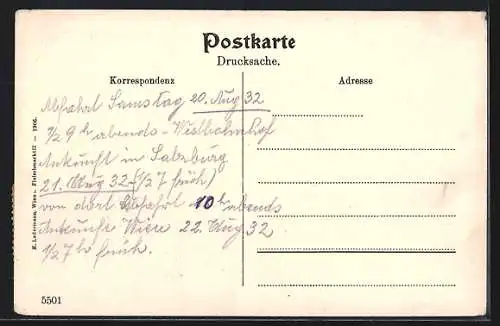 Postkarte
Drucksache.
Korrespondenz
Adresse
Abfahrt Samstag 20. Aug 32
1/2 9 h abends - Westbahnhof
Ankunft in Salzburg
21. Aug 32 - (1/2 7 früh)
von dort Abfahrt 10 h abends
Ankunft Wien 22. Aug. 32
1/2 7 h früh.
E. Ledermann, Wien I. Fleischmarkt 12 — 1906.
5501